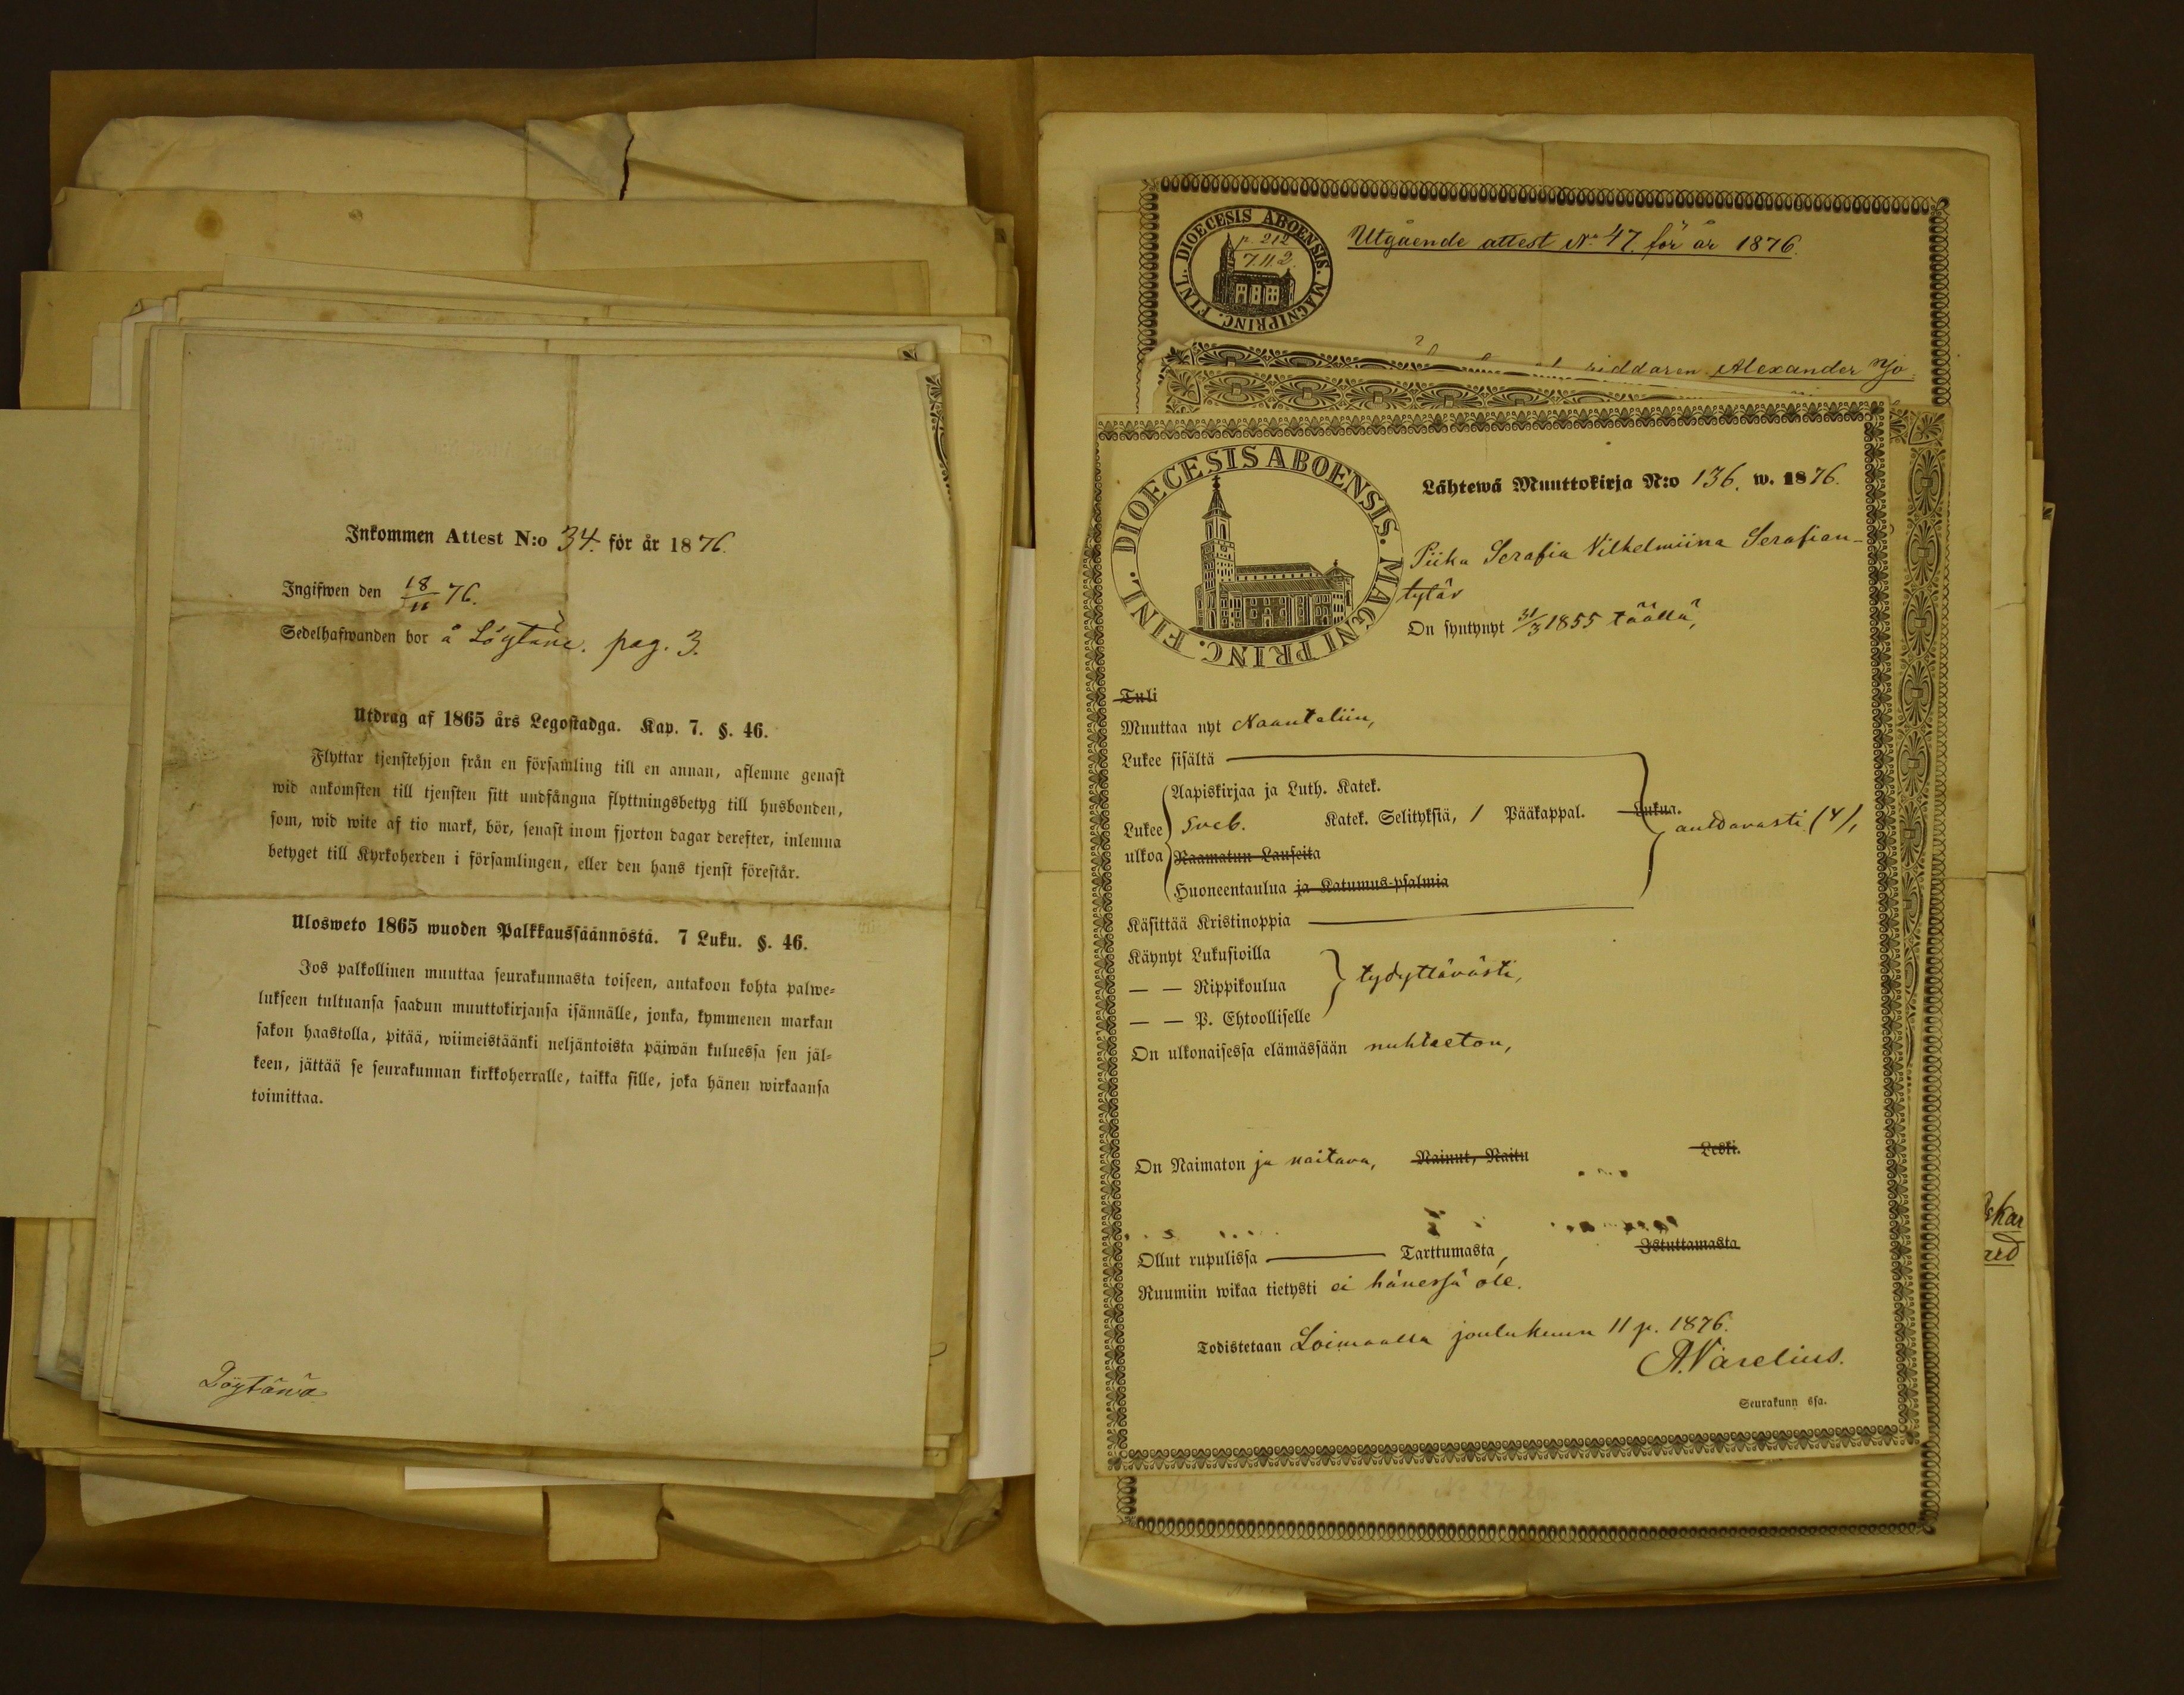 Inkommen Attest N:o 34. för år 1876.
Ingifwen den 18/11 76.
Sedelhafwanden bor å Löytäne. pag. 3.
Utdrag af 1865 års Legostadga. Kap. 7. §. 46.
Flyttar tjenstehjon från en församling till en annan, aflemne genast
wid ankomsten till tjensten sitt undfångna flyttningsbetyg till husbonden,
som, wid wite af tio mark, bör, senast inom fjorton dagar derefter, inlemna
betyget till Kyrkoherden i församlingen, eller den hans tjenst förestår.
Ulosweto 1865 wuoden Palkkaussäännöstä. 7 Luku. §. 46.
Jos palkollinen muuttaa seurakunnasta toiseen, antakoon kohta palwe-
lukseen tultuansa saadun muuttokirjansa isännälle, jonka, kymmenen markan
sakon haastolla, pitää, wiimeistäänki neljäntoista päiwän kuluessa sen jäl-
keen, jättää se seurakunnan kirkkoherralle, taikka sille, joka hänen wirkaansa
toimittaa.
Löytänä
DIOECESIS ABOENSIS. MAGNI PRINC. FINL.
p. 212
7.11.2.
Utgående attest No 47. för år 1876.
riddaren Alexander Njo
DIOECESIS ABOENSIS. MAGNI PRINC. FINL.
Lähtewä Muuttokirja N:o 136. w. 1876.
Piika Serafia Vilhelmiina Serafian-
tytär
On syntynyt 31/3 1855 täällä,
Tuli
Muuttaa nyt Naantaliin,
Lukee sisältä
Aapiskirjaa ja Luth. Katek.
Lukee ulkoa Sveb. Katek. Selityksiä, 1 Pääkappal. Lukua. auttavasti (4),
Raamatun Lauseita
Huoneentaulua ja Katumus-psalmia
Käsittää Kristinoppia
Käynyt Lukusioilla
— — Rippikoulua tydyttävästi,
— — P. Ehtoolliselle
On ulkonaisessa elämässään nuhteeton,
On Naimaton ja naitava, Nainut, Naitu Leski.
Ollut rupulissa Tarttumasta, Istuttamasta
Ruumiin wikaa tietysti ei hänessä ole.
Todistetaan Loimaalla joulukuun 11 p. 1876.
A. Varelius.
Seurakunn ssa.